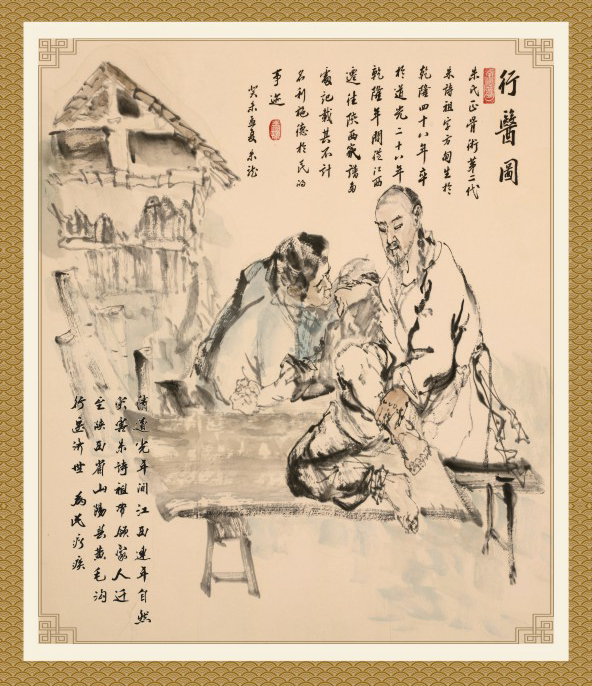 行醫圖
朱氏正骨術第二代
朱詩祖字方旬生於
乾隆四十八年卒
於道光二十八年
乾隆年間從江西
遷往陝西家譜與
處記載其不計
名利施德於民的
事迹
癸未孟夏
清道光年間江西連年自然
灾害朱詩祖带領家人迁
至陝西省山陽县黄毛沟
行医济世 為民疗疾